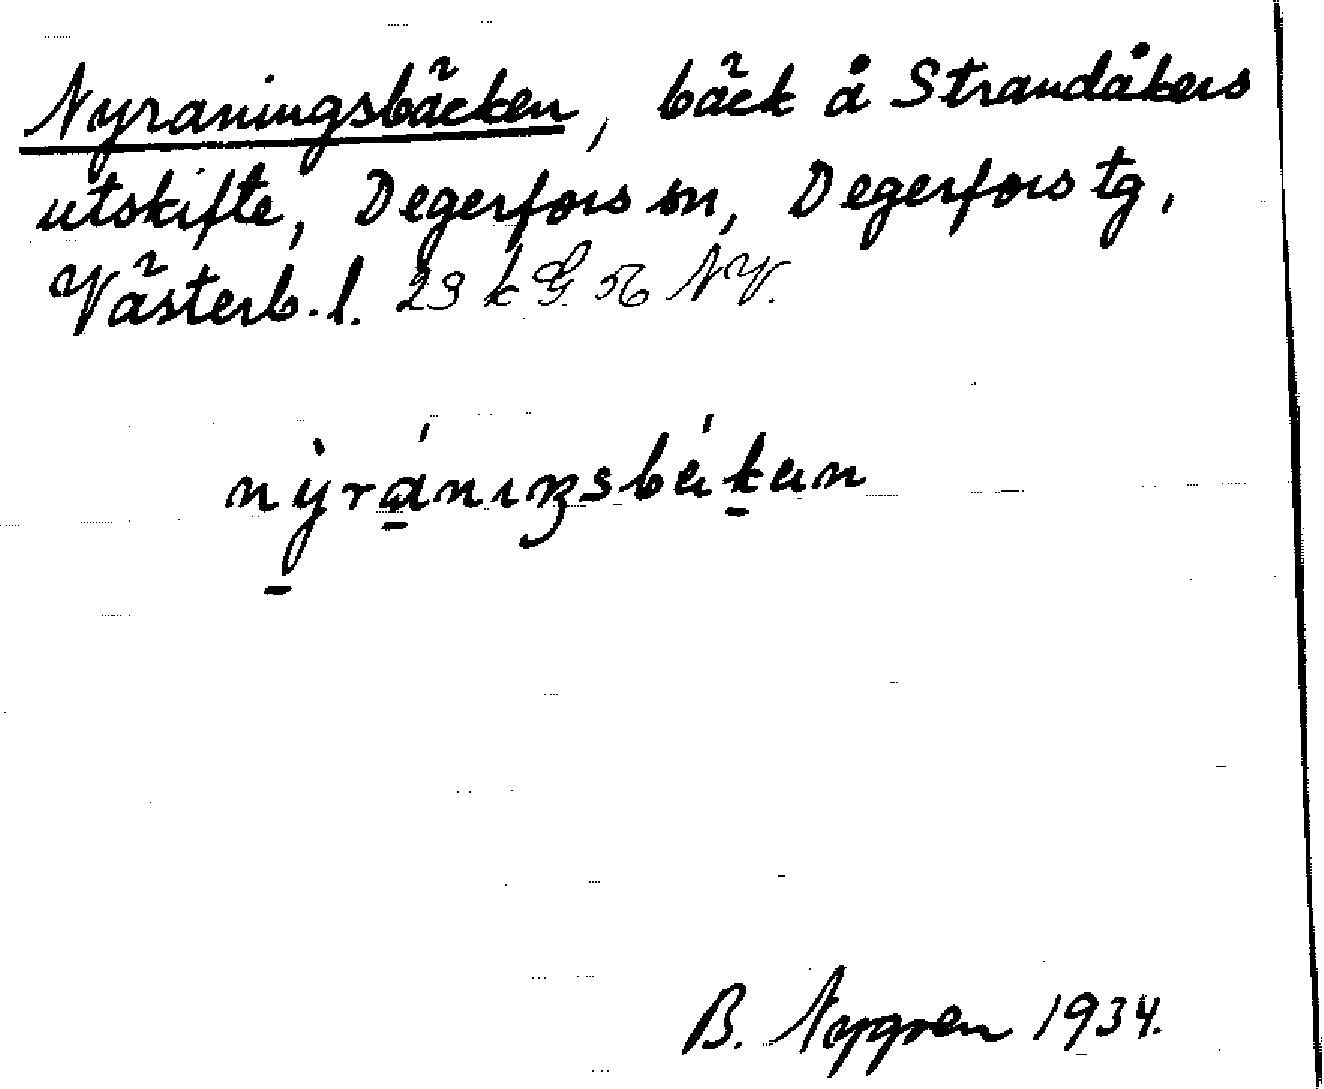 Nyraningsbäcken, bäck å Strandåkers
utskifte, Degerfors sn, Degerfors tg,
Västerb. l. 23 k G. 56 NV.
nỳ̠rá̠nıŋsbä́k̠än
B. Nygren 1934.